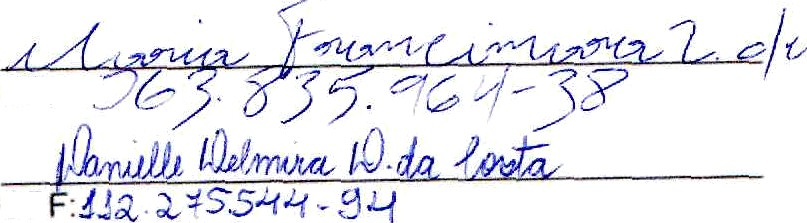 Maria Francimara L. de
963.835.964-38
Danielle Delmira D. da Costa
F:112.275544-94